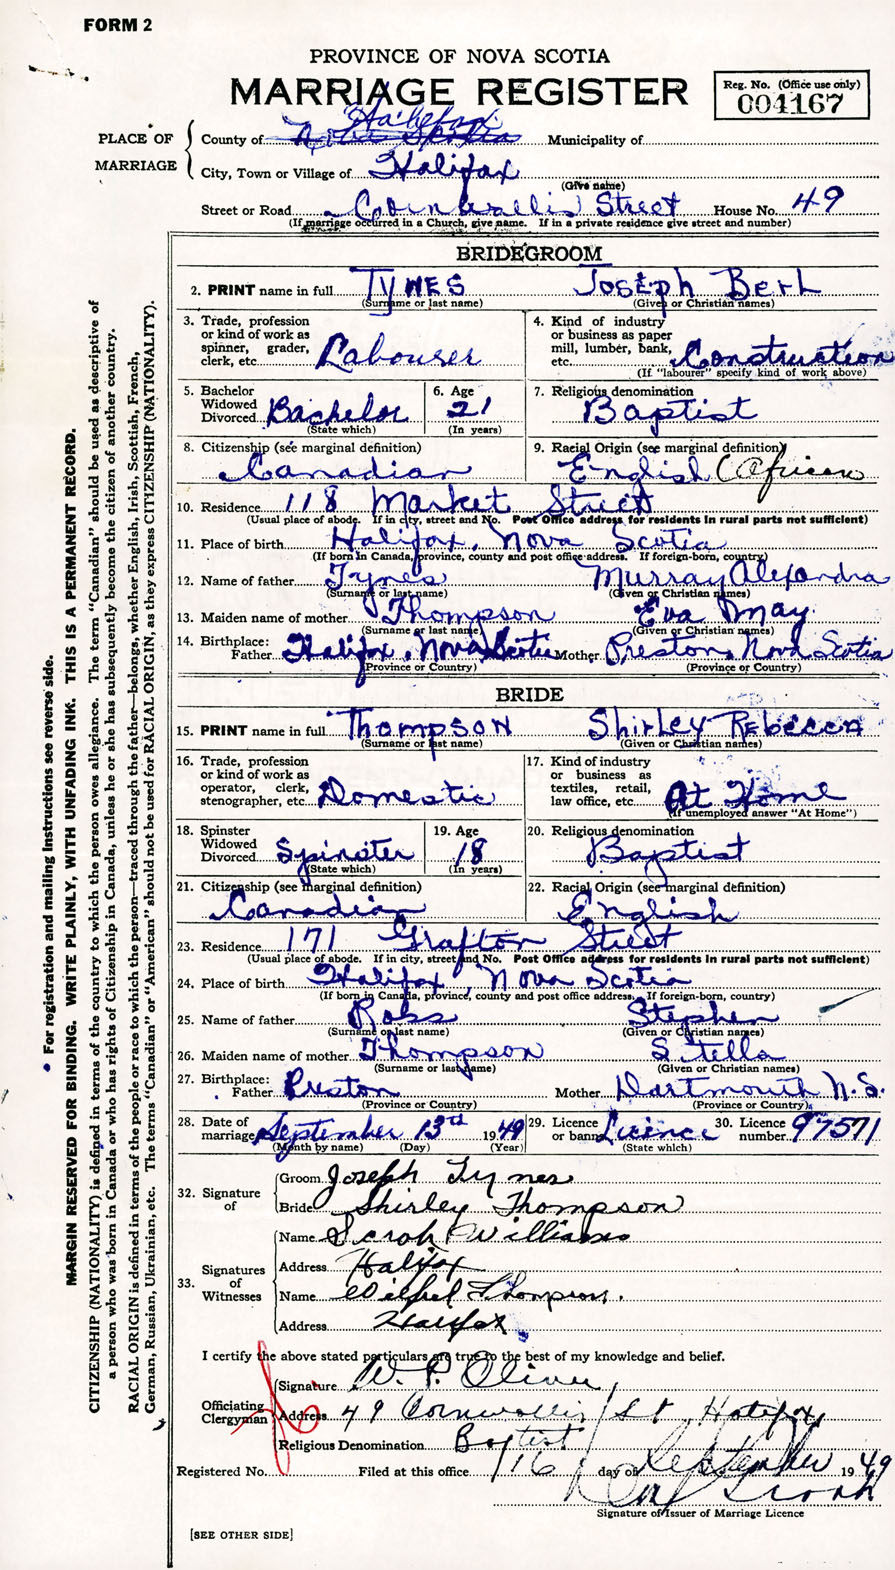 FORM 2
PROVINCE OF NOVA SCOTIA
MARRIAGE REGISTER
Reg. No. (Office use only)
004167
PLACE OF MARRIAGE
County of Halifax Nova Scotia Municipality of
City, Town or Village of Halifax
(Give name)
Street or Road Cornwallis Street House No. 49
(If marriage occurred in a Church, give name. If in a private residence give street and number)
BRIDEGROOM
2. PRINT name in full TYNES Joseph Berl
(Surname or last name) (Given or Christian names)
3. Trade, profession or kind of work as spinner, grader, clerk, etc. Labourer
4. Kind of industry or business as paper mill, lumber, bank, etc. Construction
(If "labourer" specify kind of work above)
5. Bachelor Widowed Divorced Bachelor
(State which)
6. Age 21
(In years)
7. Religious denomination Baptist
8. Citizenship (see marginal definition) Canadian
9. Racial Origin (see marginal definition) English (African
10. Residence 118 Market Street
(Usual place of abode. If in city, street and No. Post Office address for residents in rural parts not sufficient)
11. Place of birth Halifax, Nova Scotia
(If born in Canada, province, county and post office address. If foreign-born, country)
12. Name of father Tynes Murray Alexandra
(Surname or last name) (Given or Christian names)
13. Maiden name of mother Thompson Eva May
(Surname or last name) (Given or Christian names)
14. Birthplace: Father Halifax, Nova Scotia Mother Preston, Nova Scotia
(Province or Country) (Province or Country)
BRIDE
15. PRINT name in full Thompson Shirley Rebecca
(Surname or last name) (Given or Christian names)
16. Trade, profession or kind of work as operator, clerk, stenographer, etc. Domestic
17. Kind of industry or business as textiles, retail, law office, etc. At Home
(If unemployed answer "At Home")
18. Spinster Widowed Divorced Spinster
(State which)
19. Age 18
(In years)
20. Religious denomination Baptist
21. Citizenship (see marginal definition) Canadian
22. Racial Origin (see marginal definition) English
23. Residence 171 Grafton Street
(Usual place of abode. If in city, street and No. Post Office address for residents in rural parts not sufficient)
24. Place of birth Halifax, Nova Scotia
(If born in Canada, province, county and post office address. If foreign-born, country)
25. Name of father Ross Stephen
(Surname or last name) (Given or Christian names)
26. Maiden name of mother Thompson Stella
(Surname or last name) (Given or Christian names)
27. Birthplace: Father Preston Mother Dartmouth N.S.
(Province or Country) (Province or Country)
28. Date of marriage September 13th 1949
(Month by name) (Day) (Year)
29. Licence or banns Licence
(State which)
30. Licence number 97571
32. Signature of
Groom Joseph Tynes
Bride Shirley Thompson
33. Signatures of Witnesses
Name Sarah Williams
Address Halifax
Name Thompson.
Address Halifax
I certify the above stated particulars are true to the best of my knowledge and belief.
Officiating Clergyman
Signature W. P. Oliver
Address 49 Cornwallis St Halifax
Religious Denomination Baptist
Registered No. Filed at this office 16 day of September 1949
Signature of Issuer of Marriage Licence
[SEE OTHER SIDE]
• For registration and mailing instructions see reverse side.
MARGIN RESERVED FOR BINDING. WRITE PLAINLY, WITH UNFADING INK. THIS IS A PERMANENT RECORD.
CITIZENSHIP (NATIONALITY) is defined in terms of the country to which the person owes allegiance. The term "Canadian" should be used as descriptive of
a person who was born in Canada or who has rights of Citizenship in Canada, unless he or she has subsequently become the citizen of another country.
RACIAL ORIGIN is defined in terms of the people or race to which the person—traced through the father—belongs, whether English, Irish, Scottish, French,
German, Russian, Ukrainian, etc. The terms "Canadian" or "American" should not be used for RACIAL ORIGIN, as they express CITIZENSHIP (NATIONALITY).